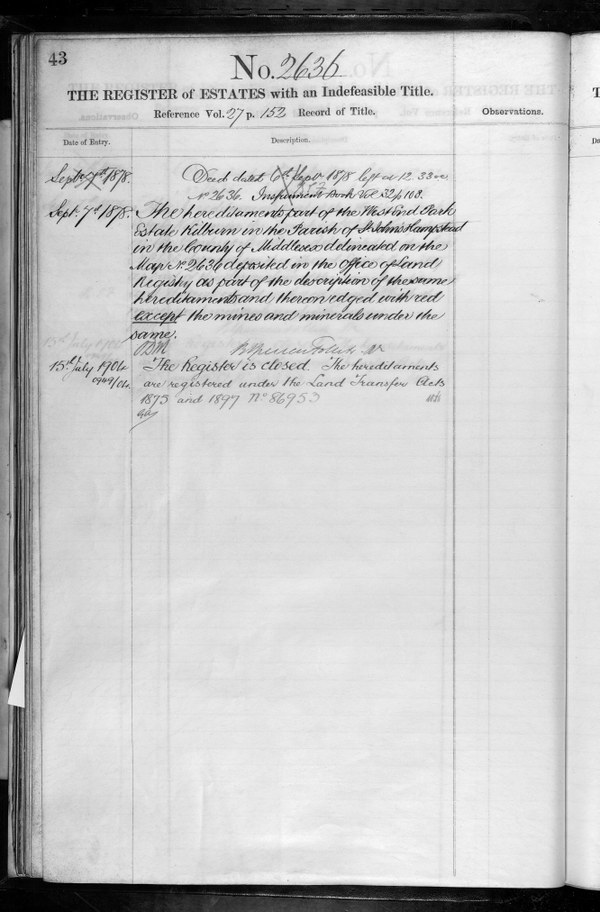 43
No. 2636
THE REGISTER of ESTATES with an Indefensible Title.
Reference Vol. 27 p. 152 Record of Title.
Observations.
Date of Entry.
Description.
Sept. 7th 1878. Deed dated 6th Sept 1878 left at 12.33
No 2636. Instrument Book Vol 32 p 108.
Sept. 7th 1878. The hereditaments part of the West End Park
Estate Kilburn in the Parish of St Johns Hampstead
in the County of Middlesex delineated on the
Map No 2636 deposited in the Office of Land
Registry as part of the description of the same
hereditaments and thereon edged with red
except the mines and minerals under the
same.
15th July 190 The Register is closed. The hereditaments
are registered under the Land Transfer Acts
1875 and 1897 No 86953